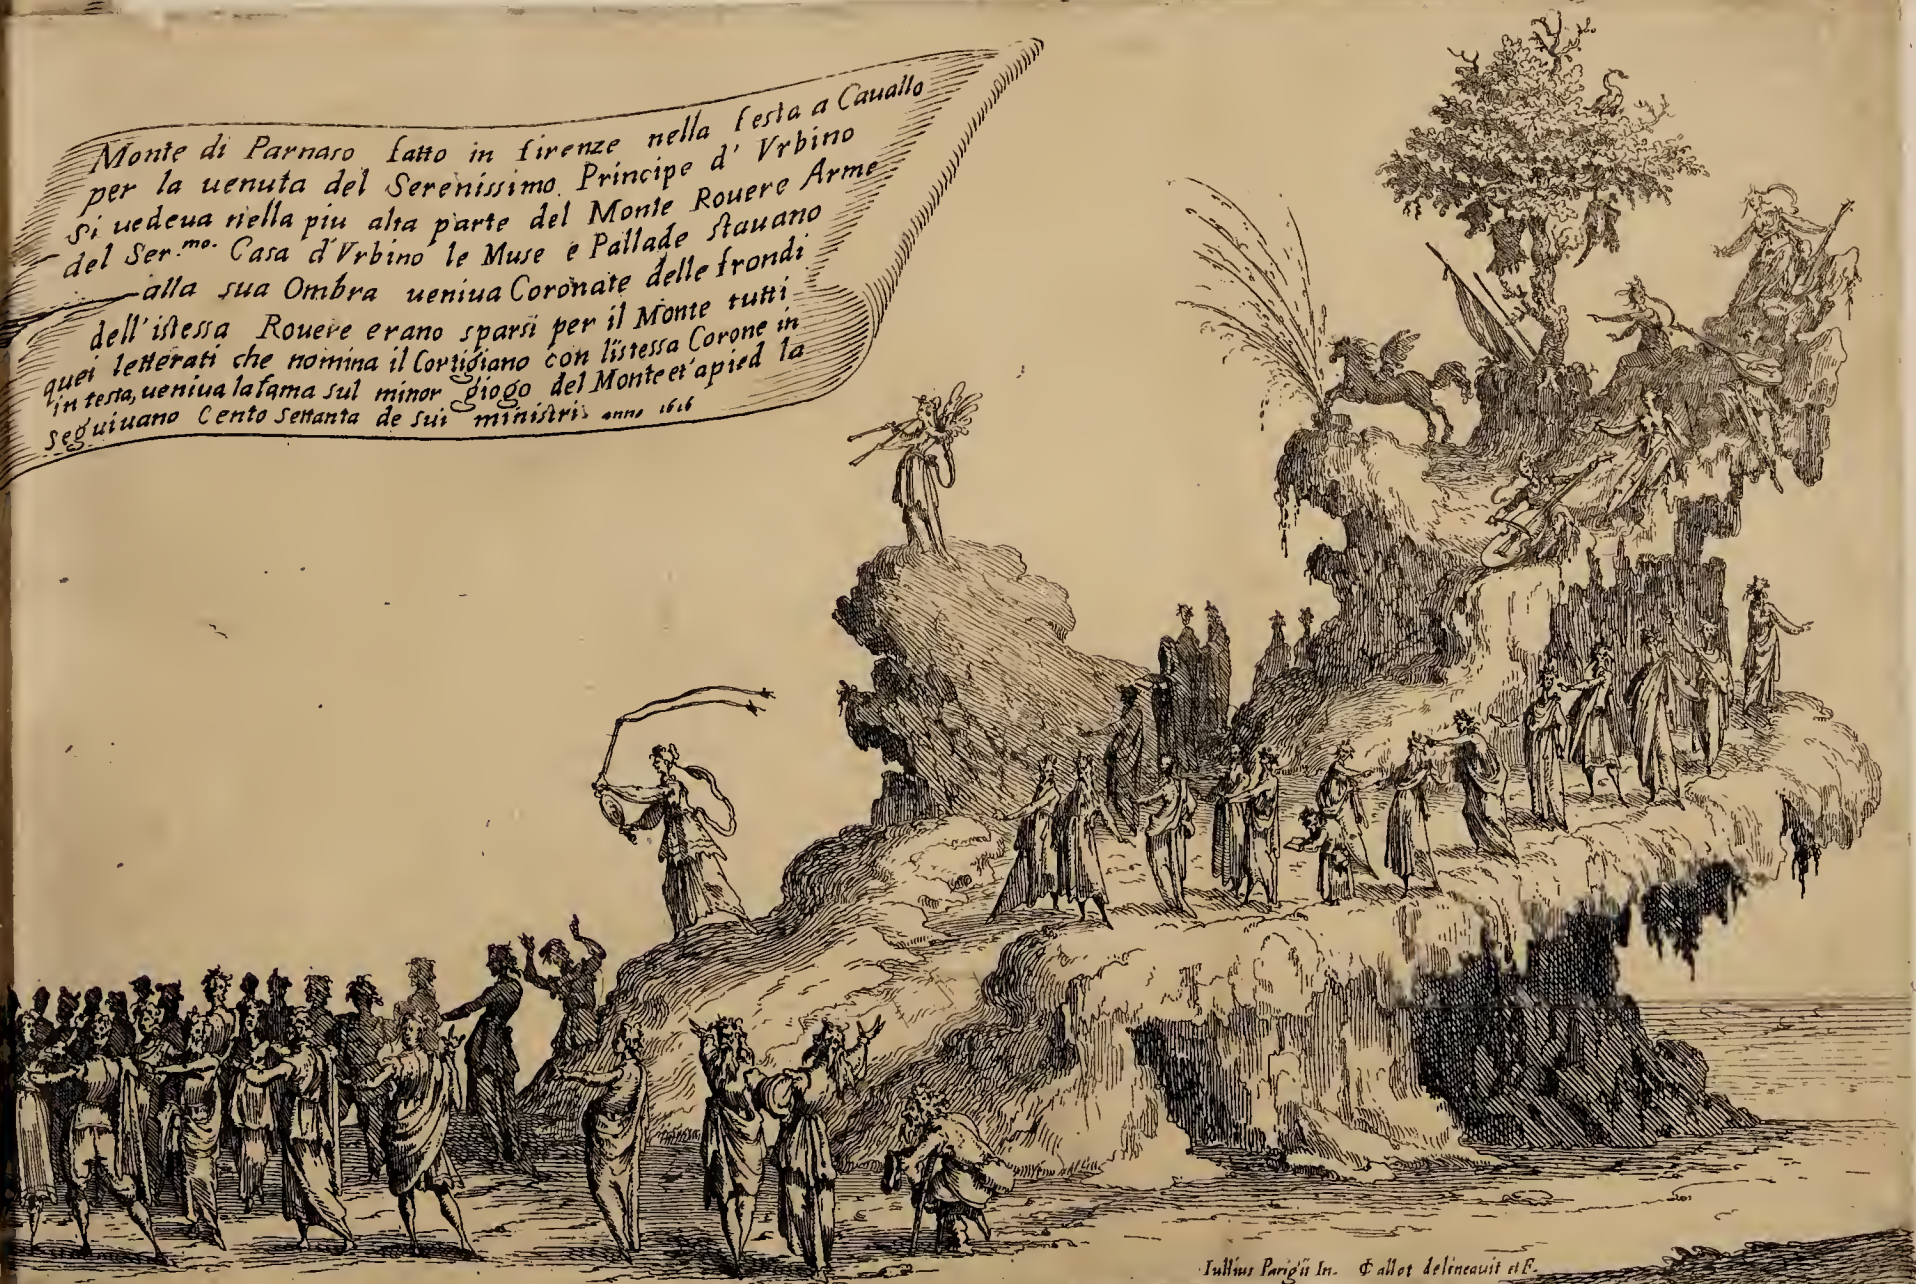 Monte di Parnaso fatto in firenze nella festa a Cauallo
per la uenuta del Serenissimo Principe d' Vrbino
Si uedeua nella piu alta parte del Monte Rouere Arme
del Ser.mo. Casa d'Vrbino le Muse e Pallade stauano
alla sua Ombra ueniua Coronate delle frondi
dell'istessa Rouere erano sparsi per il Monte tutti
quei letterati che nomina il Cortigiano con l'istessa Corone in
in testa, ueniua la fama sul minor giogo del Monte et a pied la
seguiuano Cento settanta de sui ministri anno 1616
Iullius Parigii In. Callot delineauit et F.